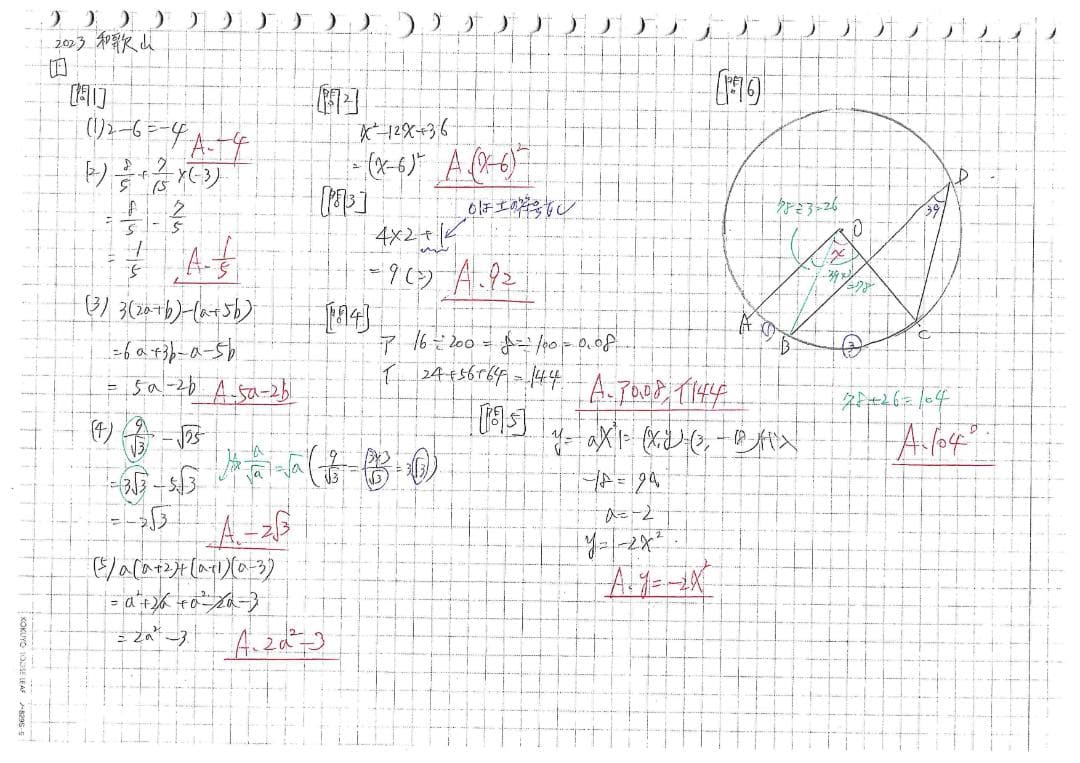 2023 和歌山
1
[問1]
(1) 2-6=-4
A.-4
(2) 8/5+7/15×(-3)
=8/5-7/5
=1/5
A.1/5
(3) 3(2a+b)-(a+5b)
=6a+3b-a-5b
=5a-2b A.5a-2b
(4) 9/√3-√75
=3√3-5√3
a/√a=√a(9/√3=3×3/√3=3√3)
=-2√3
A.-2√3
(5) a(a+2)+(a+1)(a-3)
=a²+2a+a²-2a-3
=2a²-3
A.2a²-3
[問2]
x²-12x+36
=(x-6)²
A.(x-6)²
[問3]
4×2+1
=9(こ)
A.9こ
[問4]
ア 16÷200=8÷100=0.08
イ 24+56+64=144
A.ア0.08,イ144
[問5]
y=ax²に(x,y)=(3,-18)代入
-18=9a
a=-2
y=-2x²
A.y=-2x²
[問6]
D
39
78÷3=26
O
x
39×2
=78
A
①
B
③
C
78+26=104
A.104°
KOKUYO LOOSE-LEAF